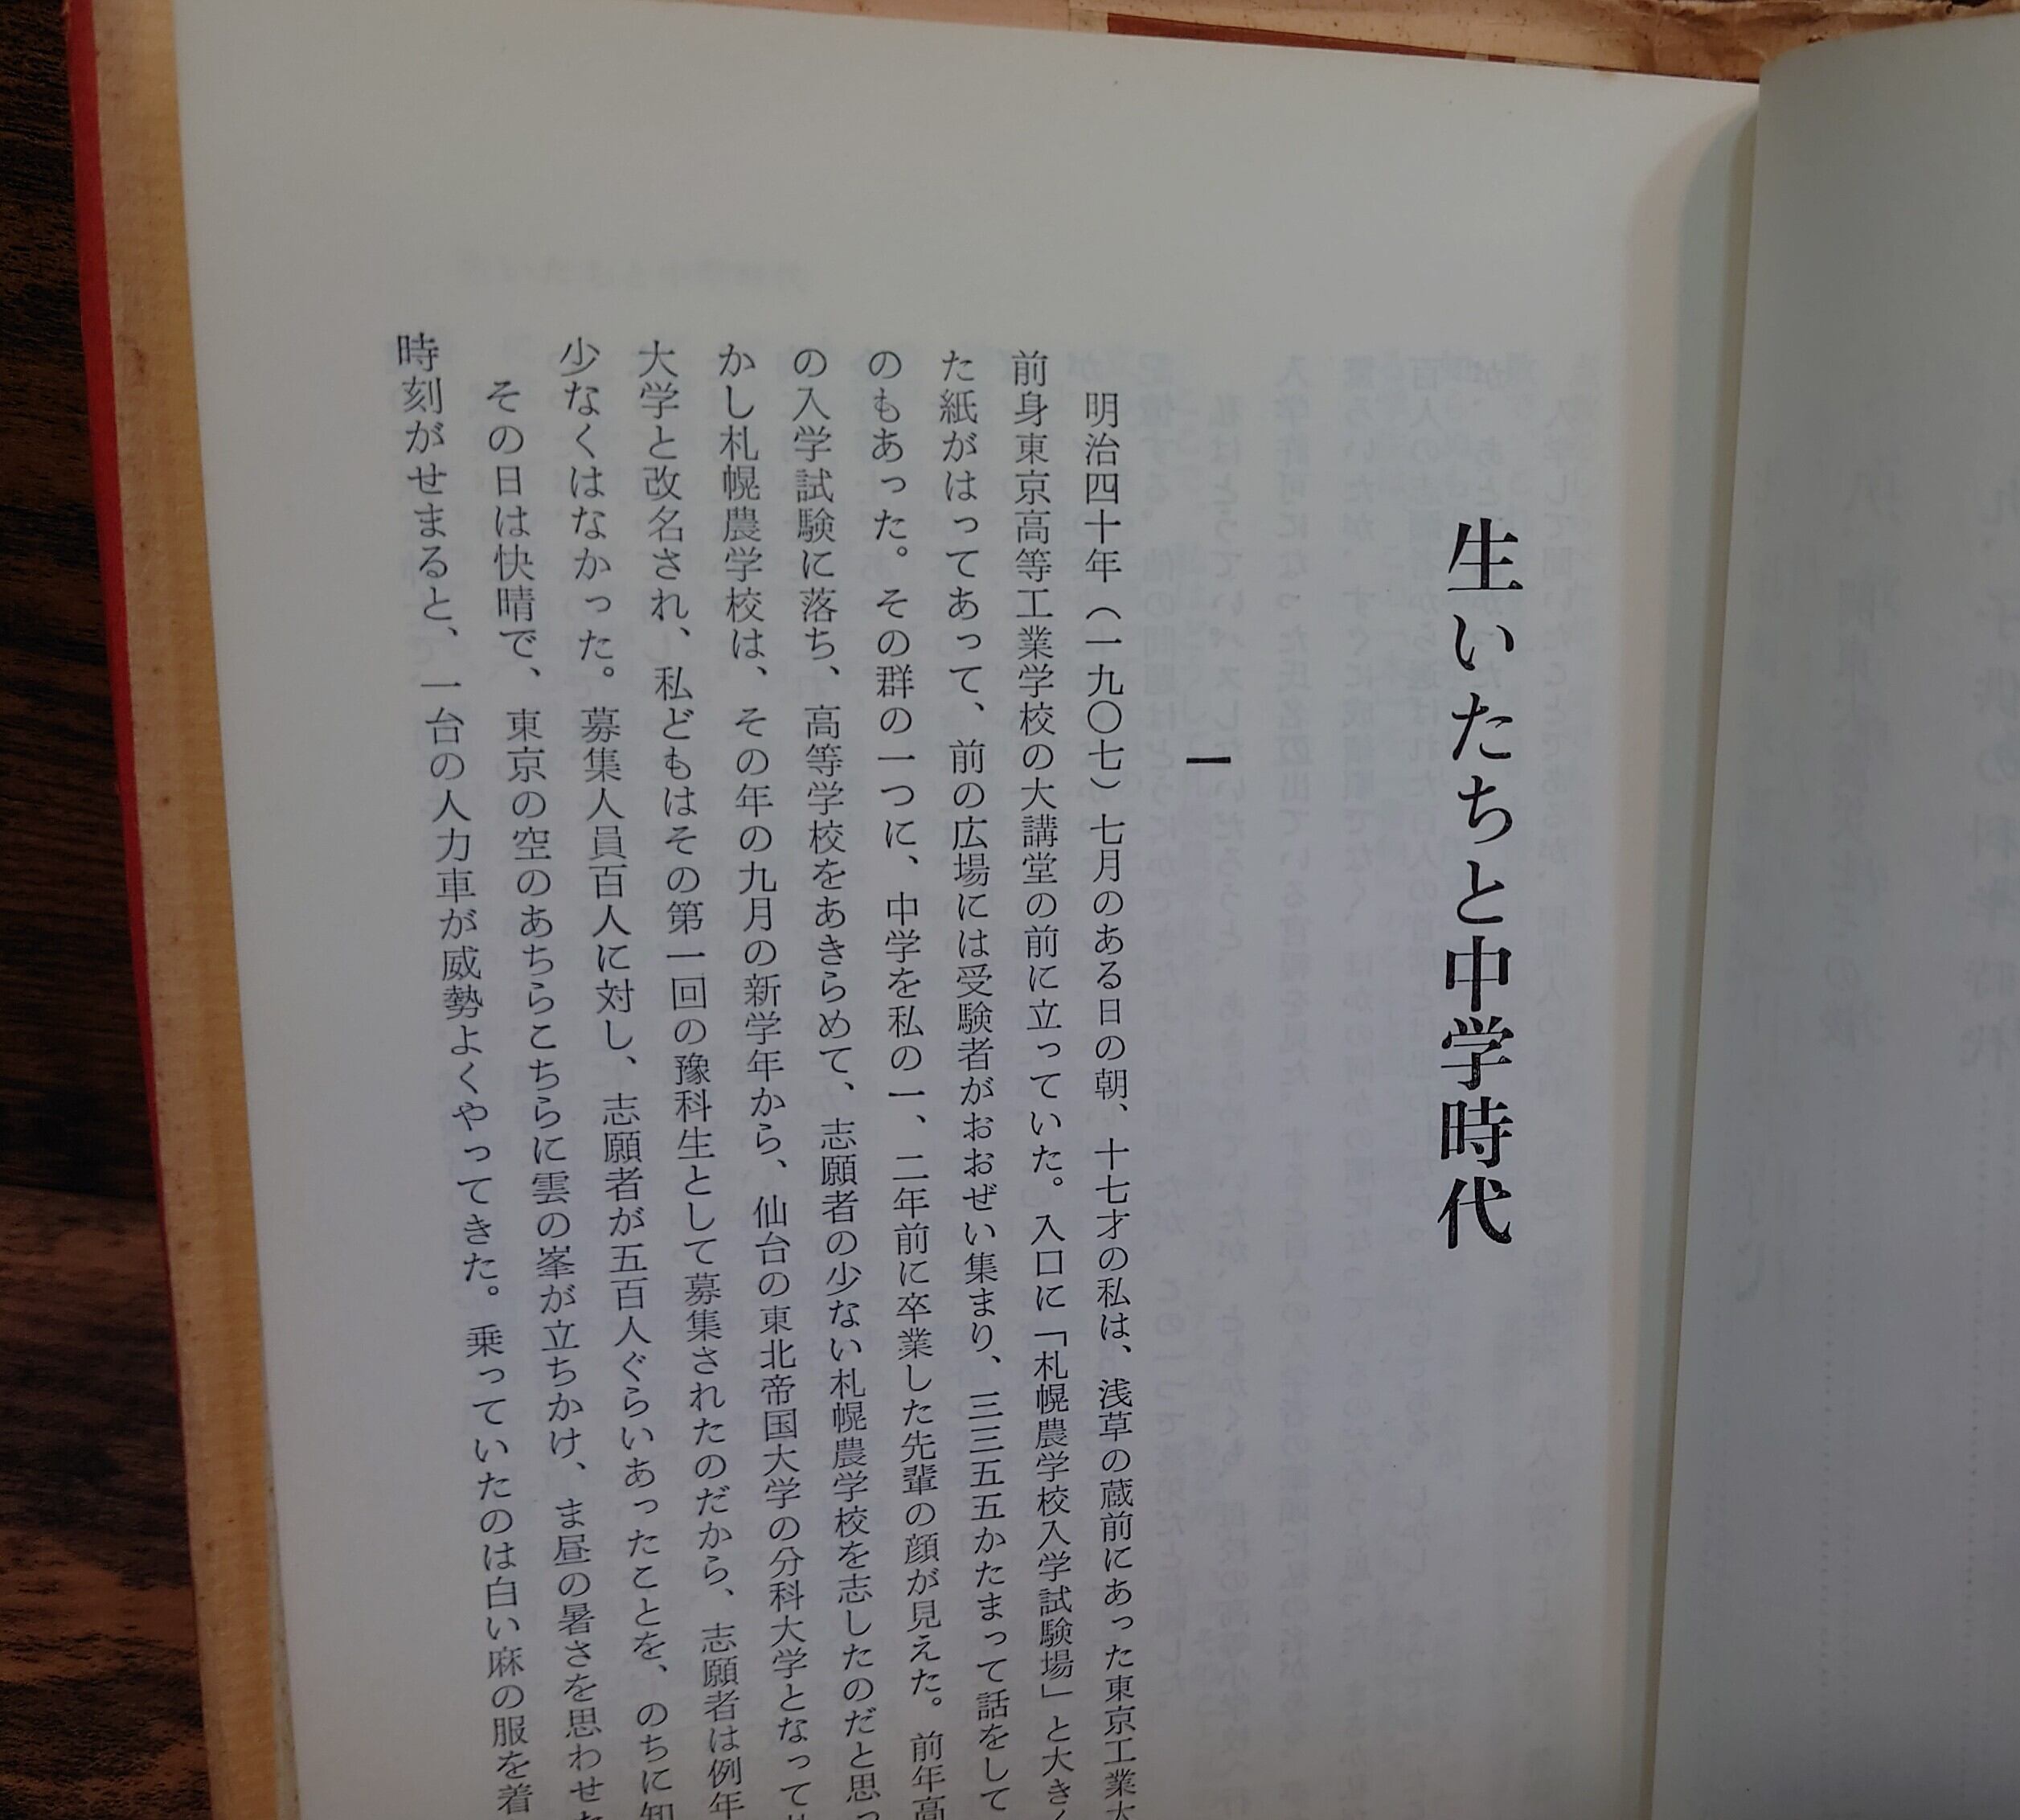 生いたちと中学時代
一
明治四十年（一九〇七）七月のある日の朝、十七才の私は、浅草の蔵前にあった東京工業大
前身東京高等工業学校の大講堂の前に立っていた。入口に「札幌農学校入学試験場」と大きく
た紙がはってあって、前の広場には受験者がおおぜい集まり、三三五五かたまって話をして
のもあった。その群の一つに、中学を私の一、二年前に卒業した先輩の顔が見えた。前年高
の入学試験に落ち、高等学校をあきらめて、志願者の少ない札幌農学校を志したのだと思っ
かし札幌農学校は、その年の九月の新学年から、仙台の東北帝国大学の分科大学となって
大学と改名され、私どもはその第一回の豫科生として募集されたのだから、志願者は例年
少なくはなかった。募集人員百人に対し、志願者が五百人ぐらいあったことを、のちに知
その日は快晴で、東京の空のあちらこちらに雲の峯が立ちかけ、ま昼の暑さを思わせた
時刻がせまると、一台の人力車が威勢よくやってきた。乗っていたのは白い麻の服を着